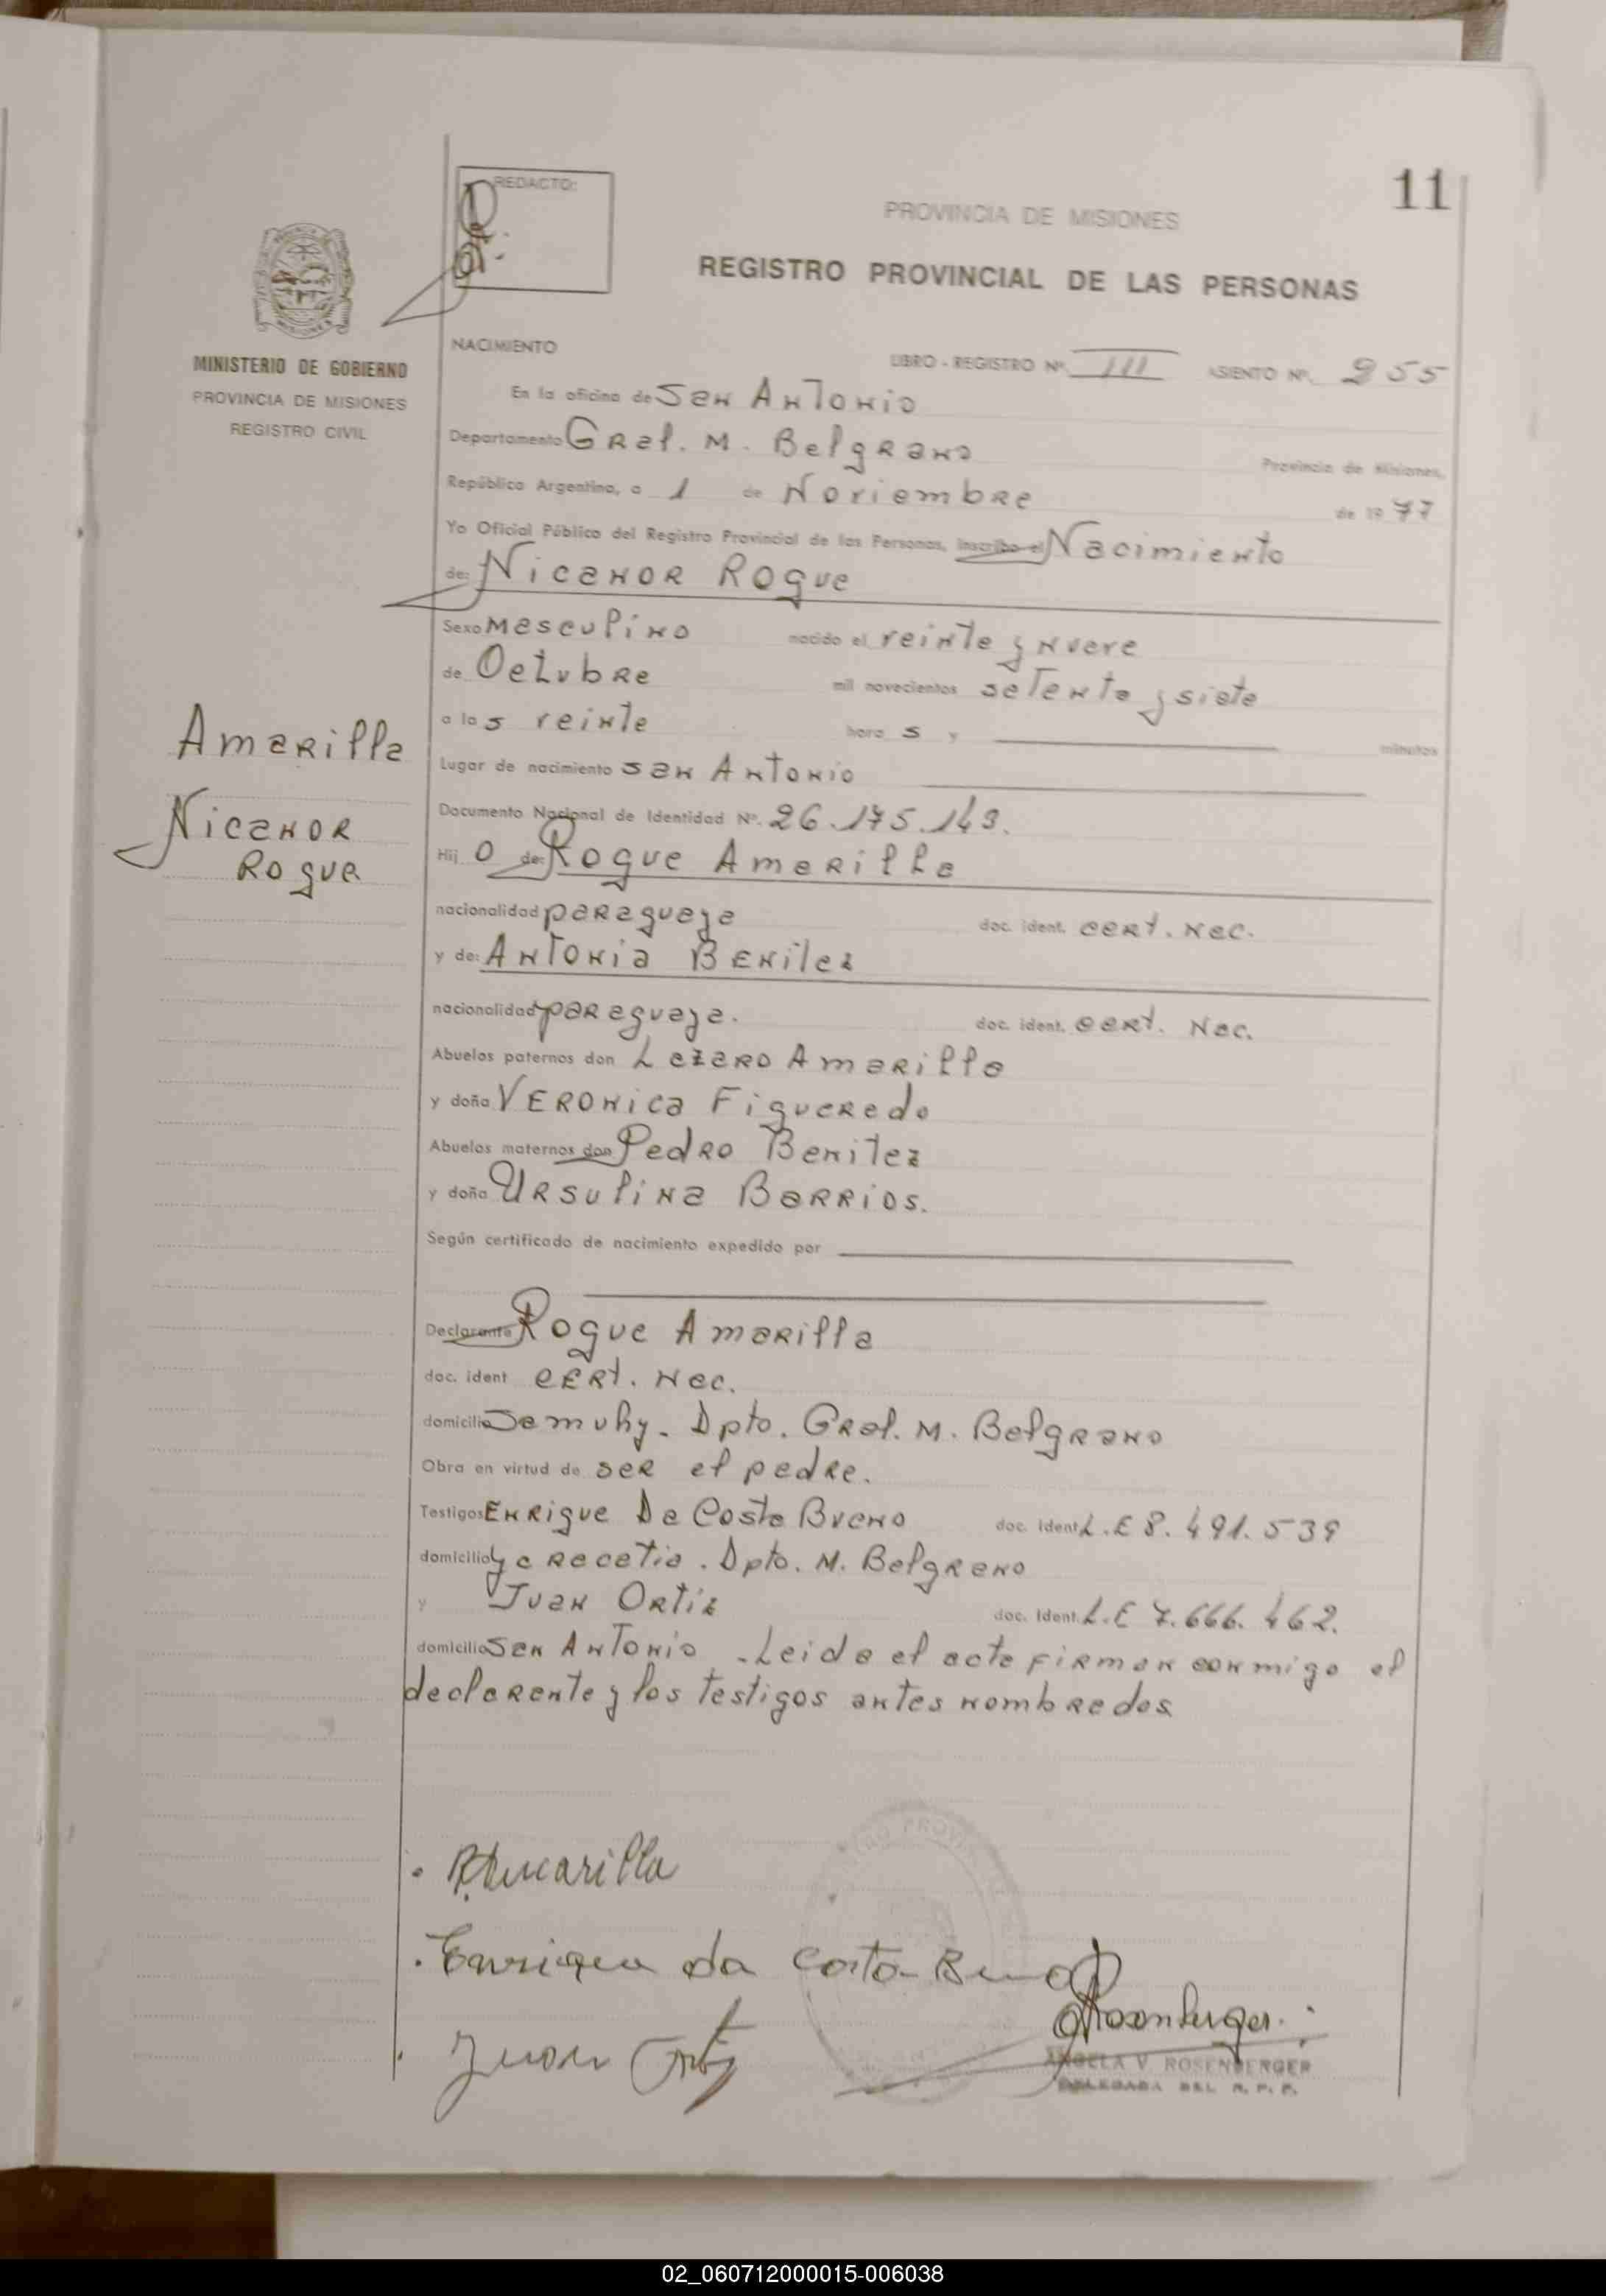 11
REDACTO:
PROVINCIA DE MISIONES
REGISTRO PROVINCIAL DE LAS PERSONAS
MISIONES
MINISTERIO DE GOBIERNO
PROVINCIA DE MISIONES
REGISTRO CIVIL
NACIMIENTO
LIBRO - REGISTRO Nº III ASIENTO Nº. 255
En la oficina de San Antonio
Departamento Gral. M. Belgrano Provincia de Misiones,
República Argentina, a 1 de Noviembre de 1977
Yo Oficial Público del Registro Provincial de las Personas, inscribo el Nacimiento
de: Nicanor Roque
Sexo Masculino nacido el veinte y nueve
de Octubre mil novecientos setenta y siete
a las veinte horas y minutos
Lugar de nacimiento San Antonio
Amarilla
Nicanor
Roque
Documento Nacional de Identidad Nº. 26.175.143.
Hijo de: Roque Amarilla
nacionalidad paraguaya doc. ident. cert. Nac.
y de: Antonia Benitez
nacionalidad paraguaya. doc. ident. cert. Nac.
Abuelos paternos don Lazaro Amarilla
y doña Veronica Figueredo
Abuelos maternos don Pedro Benitez
y doña Ursulina Barrios.
Según certificado de nacimiento expedido por
Declarante Roque Amarilla
doc. ident cert. Nac.
domicilio Samuhy. Dpto. Gral. M. Belgrano
Obra en virtud de ser el padre.
Testigos Enrique Da Costa Bueno doc. ident. L.E 8.491.539
domicilio Yacaratia. Dpto. M. Belgrano
y Juan Ortiz doc. ident. L.E 7.666.462.
domicilio San Antonio - Leida el acta firman conmigo el
declarante y los testigos antes nombrados
R. Amarilla
Enrique da Costa Bueno
Juan Ortiz
A Rosenberger
ANGELA V. ROSENBERGER
DELEGADA DEL R. P. P.
02_060712000015-006038